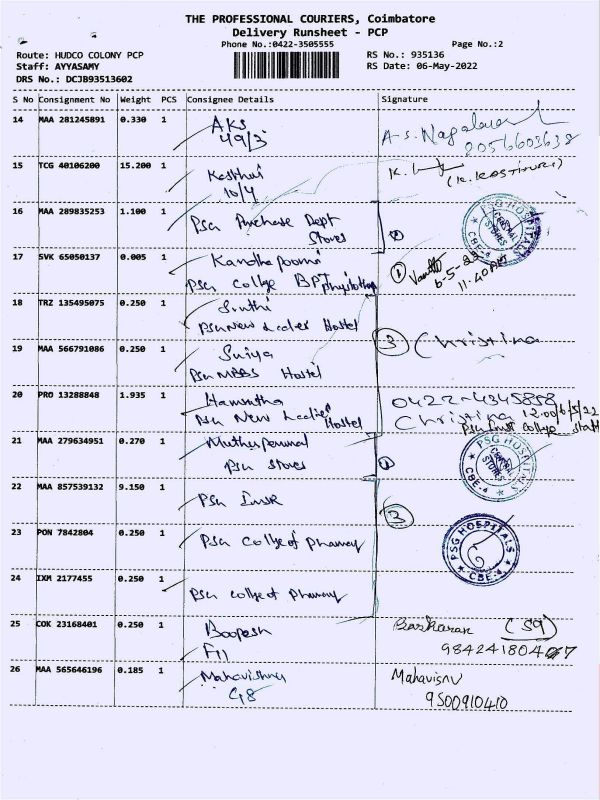 THE PROFESSIONAL COURIERS, Coimbatore
Delivery Runsheet - PCP
Phone No.:0422-3505555
Page No.:2
Route: HUDCO COLONY PCP
RS No.: 935136
Staff: AYYASAMY
RS Date: 06-May-2022
DRS No.: DCJB93513602
S No Consignment No Weight PCS Consignee Details Signature
14 MAA 281245891 0.330 1 AKS
49/3
15 TCG 40106200 15.200 1 Kasthuri K.
10/4 (K.KASTHURI)
16 MAA 289835253 1.100 1 PSG Purchase Dept
Stores
PSG HOSPITALS
CENTRAL STORES
CBE-4
17 SVK 65050137 0.005 1 Kandhapoorni
PSG College BPT
1 6-5-22
11.40AM
18 TRZ 135495075 0.250 1
PSG New Ladies Hostel
3 Christina
19 MAA 566791086 0.250 1 Suriya
PSG MBBS Hostel
20 PRO 13288848 1.935 1 Hamsutha 0422-4345858
PSG New Ladies Hostel Christina 12.00 6/5/22
21 MAA 279634951 0.270 1 Muthuperumal
PSG Stores
PSG HOSPITALS
CENTRAL STORES
CBE-4
22 MAA 857539132 9.150 1
3
23 PON 7842804 0.250 1 PSG College of Pharmacy
PSG HOSPITALS
CBE-4
24 IXM 2177455 0.250 1
PSG College of Pharmacy
25 COK 23168401 0.250 1 Boopesh Baskaran (59)
F11
26 MAA 565646196 0.185 1 Mahavishnu Mahavisnu
G8 9500910410